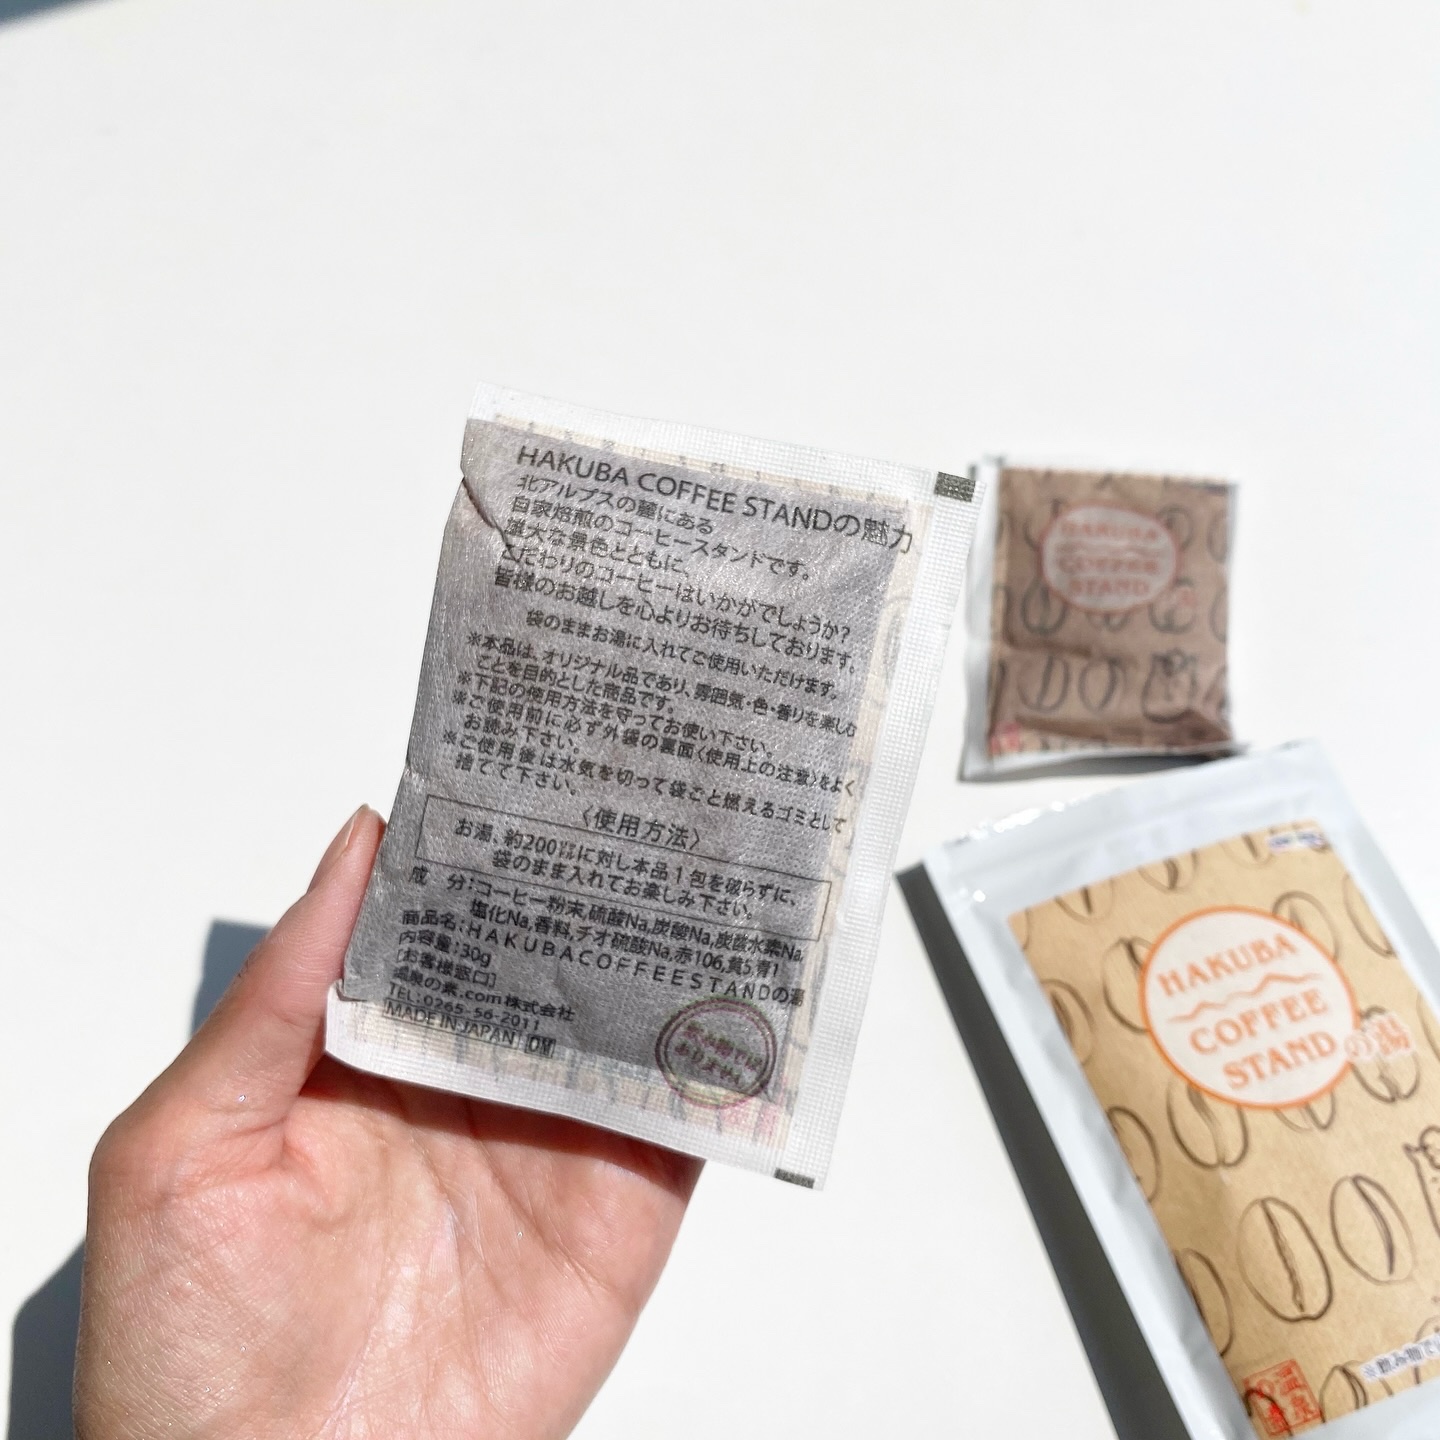 HAKUBA COFFEE STANDの魅力
北アルプスの麓にある
自家焙煎のコーヒースタンドです。
雄大な景色とともに、
こだわりのコーヒーはいかがでしょうか?
皆様のお越しを心よりお待ちしております。
袋のままお湯に入れてご使用いただけます。
※本品は、オリジナル品であり、雰囲気・色・香りを楽しむ
ことを目的とした商品です。
※下記の使用方法を守ってお使い下さい。
※ご使用前に必ず外袋の裏面〈使用上の注意〉をよく
お読み下さい。
※ご使用後は水気を切って袋ごと燃えるゴミとして
捨てて下さい。
〈使用方法〉
お湯、約200㍑に対し本品1包を破らずに、
袋のまま入れてお楽しみ下さい。
成 分:コーヒー粉末,硫酸Na,炭酸Na,炭酸水素Na,
塩化Na,香料,チオ硫酸Na,赤106,黄5,青1
商品名:HAKUBACOFFEESTANDの湯
内容量:30g
[お客様窓口]
温泉の素.com株式会社
TEL:0265-56-2011
MADE IN JAPAN DM
飲み物では
ありません
HAKUBA
COFFEE
STAND
HAKUBA
COFFEE
STAND
の湯
※飲み物では